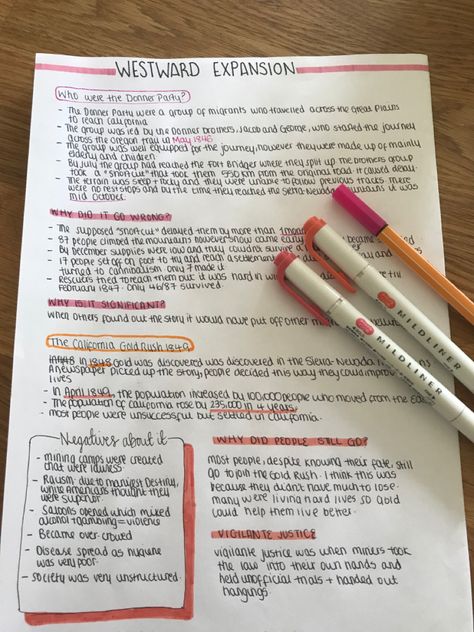 WESTWARD EXPANSION
WHO were the Donner Party?
- The Donner Party were a group of migrants who travelled across the Great Plains
to reach California
- The group was led by the Donner brothers, Jacob and George, who started the journey
across the Oregon trail in May 1846
- The group was well equipped for the journey, however they were made up of mainly
elderly and children
- By July the group had reached the Fort Bridger where they split up the brothers group
took a "shortcut" that took them 550km from the original road. It caused delay.
- The terrain was steep + rocky and they were unable to follow previous tracks. There
were no rest stops and by the time they reached the Sierra Nevada mountains it was
mid October
WHY DID IT GO WRONG?
- The supposed "shortcut" delayed them by more than 1 month
- 87 people climbed the mountains however snow came early
- By december supplies were low and they couldn't survive a
- 17 people set off on foot to try and reach a settlement
turned to cannibalism only 7 made it
- Rescuers tried to reach them but it was hard in
february 1847. Only 46/87 survived.
WHY IS IT SIGNIFICANT?
When others found out the story it would have put off other
The California Gold Rush 1849
- In 1848 Gold was discovered was discovered in the Sierra Nevada
A newspaper picked up the story, people decided this way they could improve
lives
- In April 1849, the population increased by 100,000 people who moved from the
- The population of California rose by 235,000 in 4 years.
- most people were unsuccessful but settled in California.
Negatives about it
- mining camps were created
that were lawless
- Racism due to manifest Destiny,
white Americans thought they
were superior
- Saloons opened which mixed
alcohol + gambling = violence
- Became over crowded
- Disease spread as hygiene
was very poor.
- society was very unstructured.
WHY DID PEOPLE STILL GO?
most people, despite knowing their fate, still
go to join the Gold Rush. I think this was
because they didn't have much to lose.
many were living hard lives so Gold
could help them live better.
VIGILANTE JUSTICE
vigilante justice was when miners took
the law into their own hands and
held unofficial trials + handed out
hangings.
MILDLINER
MILDLINER